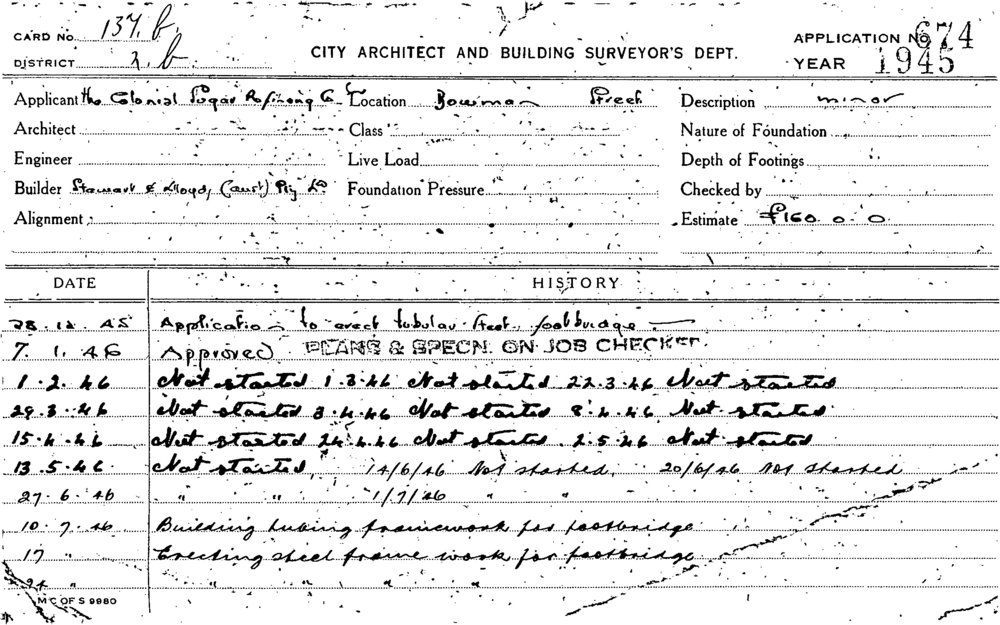 CARD No. 137.b. CITY ARCHITECT AND BUILDING SURVEYOR'S DEPT. APPLICATION No. 674
DISTRICT 2.b YEAR 1945
Applicant The Colonial Sugar Refining Co Location Bowman Street Description minor
Architect Class Nature of Foundation
Engineer Live Load Depth of Footings
Builder Stewart & Lloyds (Aust) Pty Ld Foundation Pressure Checked by
Alignment Estimate £160.0.0
DATE HISTORY
28.12.45 Application to erect tubular steel footbridge
7.1.46 Approved PLANS & SPECN. ON JOB CHECKED.
1.2.46 Not started 1.3.46 Not started 22.3.46 Not started
29.3.46 Not started 3.4.46 Not started 8.4.46 Not started
15.4.46 Not started 24.4.46 Not started 2.5.46 Not started
13.5.46 Not started 14/6/46 Not started. 20/6/46 Not started
27.6.46 " " 1/7/46 " "
10.7.46 Building tubing framework for footbridge
17 " Erecting steel frame work for footbridge
24 " " " " "
M C OF S 9980